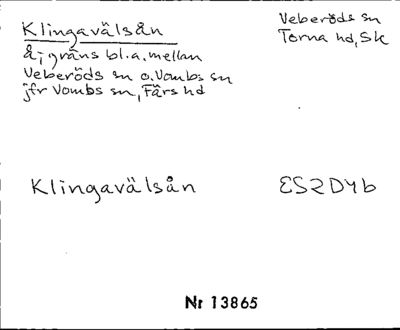 Klingavälsån
Veberöds sn
Torna hd, Sk
å; gräns bl.a. mellan
Veberöds sn o. Vombs sn
jfr Vombs sn, Färs hd
Klingavälsån
ES2D4b
Nr 13865